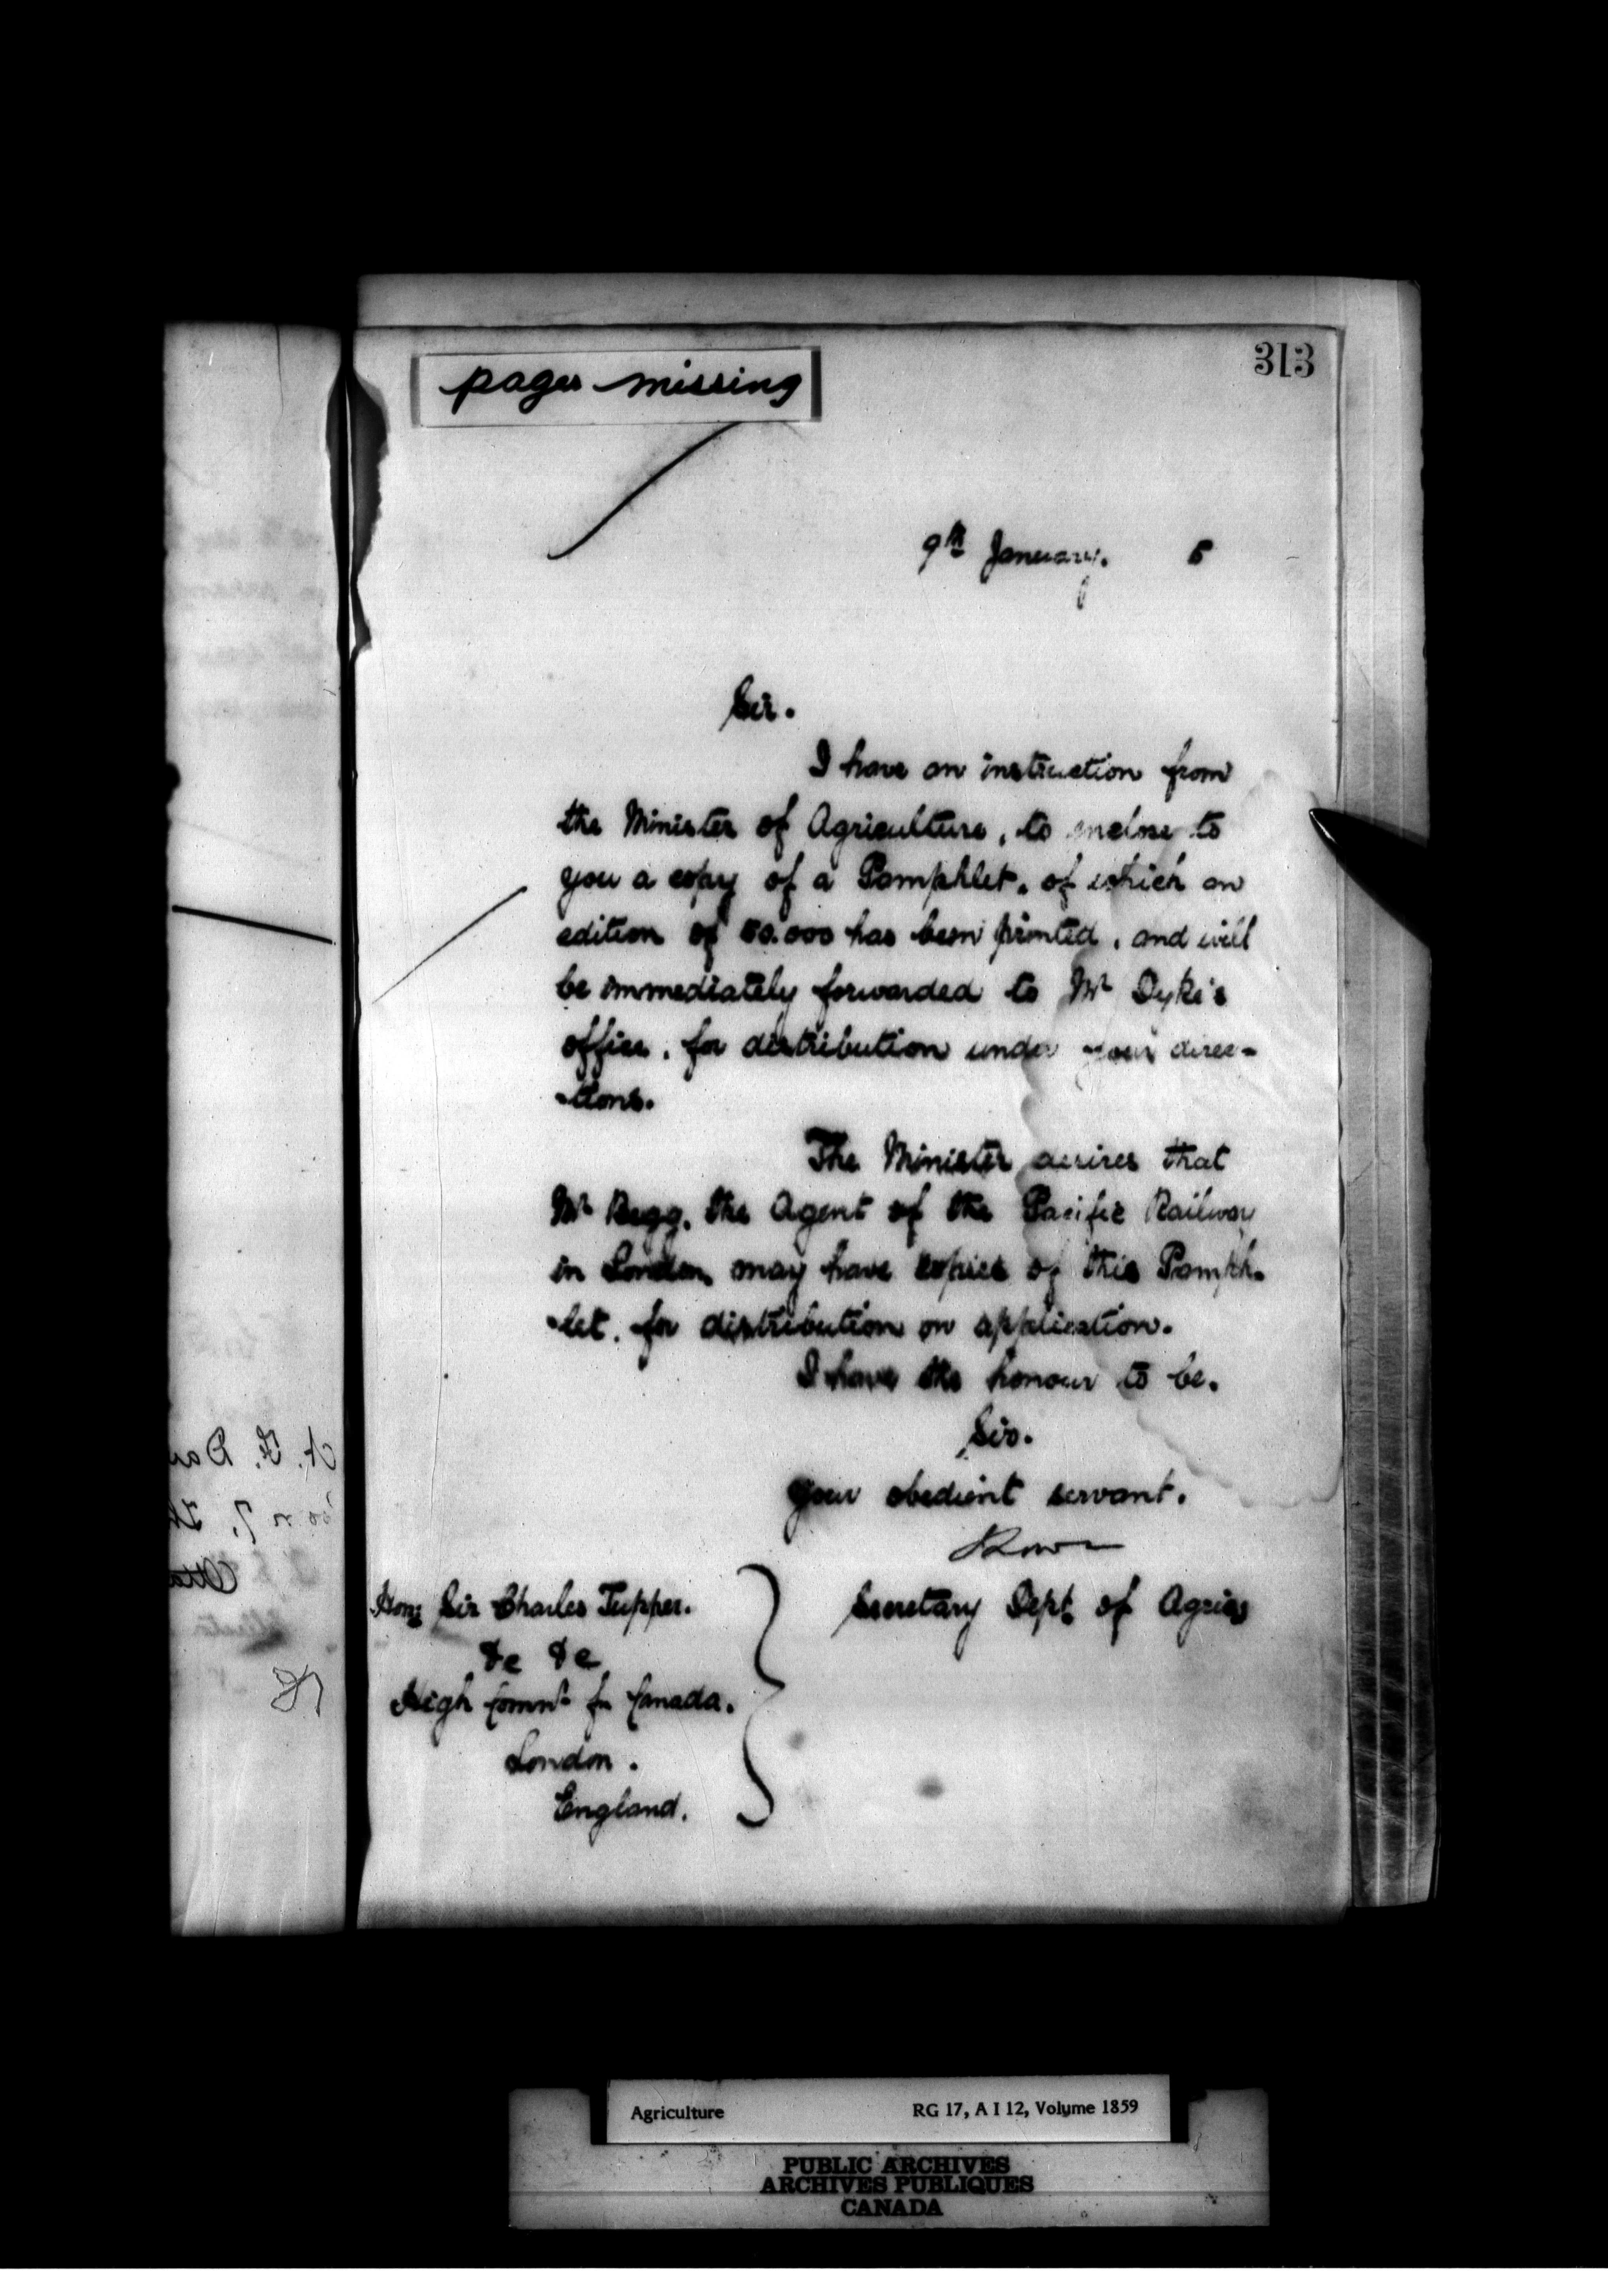 pages missing
313
9th January. 5
Sir.
I have an instruction from
the Minister of Agriculture, to enclose to
you a copy of a Pamphlet, of which an
edition of 50.000 has been printed, and will
be immediately forwarded to Mr Dyke's
office, for distribution under your direc-
-tions.
The Minister desires that
Mr Begg, the Agent of the Pacific Railway
in London, may have copies of this Pamph-
-let, for distribution on application.
I have the honour to be.
Sir.
Your obedient servant.
Secretary Dept of Agric
Hon: Sir Charles Tupper.
&c &c
High Commr for Canada.
London.
England.
Agriculture RG 17, A I 12, Volume 1859
PUBLIC ARCHIVES
ARCHIVES PUBLIQUES
CANADA